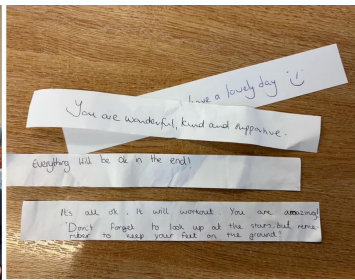 have a lovely day :)
You are wonderful, kind and supportive.
Everything will be ok in the end!
It's all ok. It will workout. You are amazing!
"Don't forget to look up at the stars, but reme-
mber to keep your feet on the ground!"